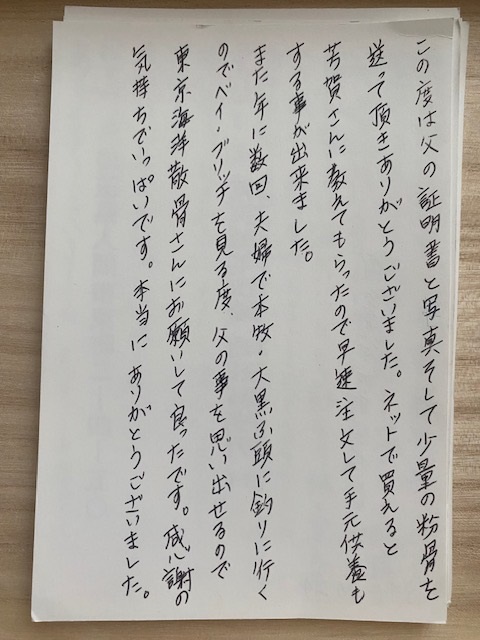 この度は父の証明書と写真そして少量の粉骨を
送って頂きありがとうございました。ネットで買えると
芳賀さんに教えてもらったので早速注文して手元供養も
する事が出来ました。
また年に数回、夫婦で本牧・大黒ふ頭に釣りに行く
のでベイ・ブリッチを見る度、父の事を思い出せるので
東京海洋散骨さんにお願いして良ったです。感謝の
気持ちでいっぱいです。本当にありがとうございました。